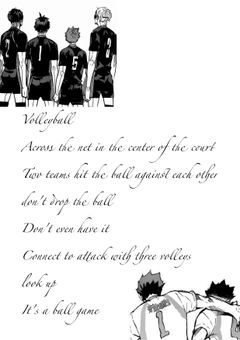 2
1
5
7
Volleyball
Across the net in the center of the court
Two teams hit the ball against each other
don't drop the ball
Don't even have it
Connect to attack with three volleys
look up
It's a ball game
1